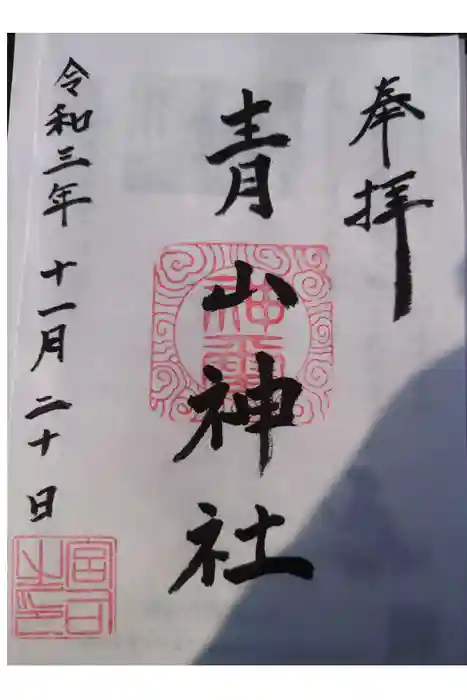 奉拝
青山神社
令和三年十一月二十日
宮司之印